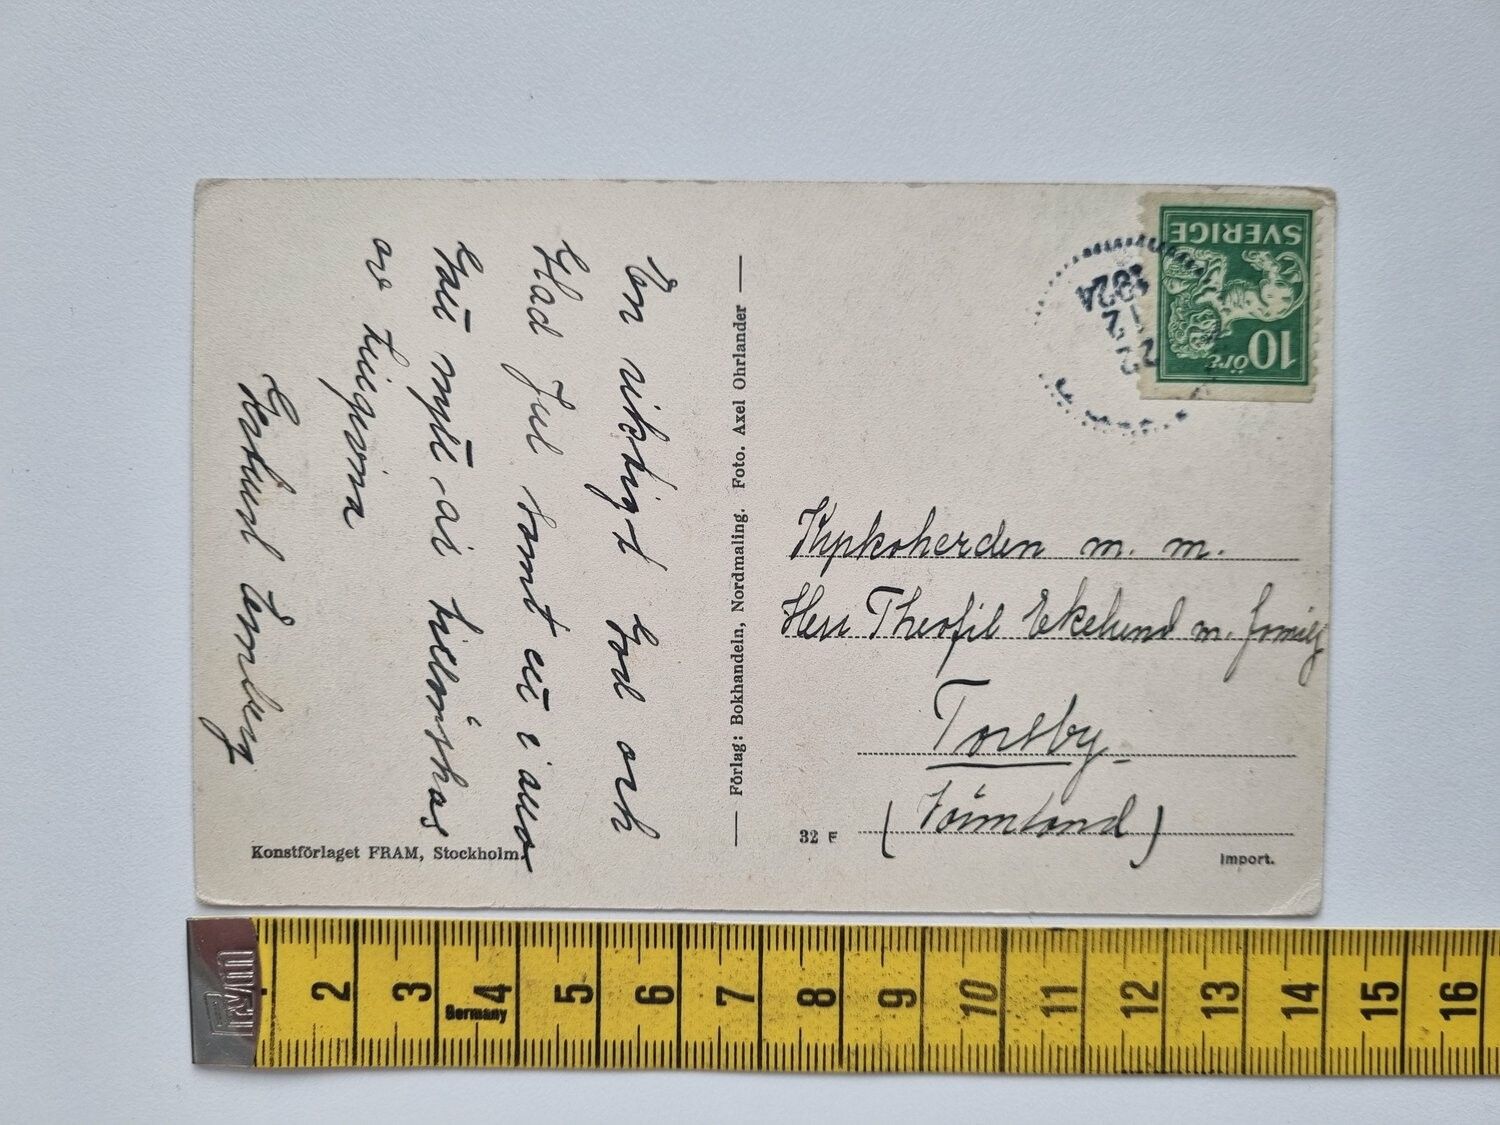 En riktigt God och
Glad Jul samt ett i allo
Gott nytt år tillönskas
av tillgivna
Förlag: Bokhandeln, Nordmaling. Foto. Axel Ohrlander
Konstförlaget FRAM, Stockholm.
SVERIGE
10 öre
22
12
1924
Kyrkoherden m. m.
Herr Theofil Ekelund m. familj
Torsby
(Värmland)
32 F
Import.
2 3 4 5 6 7 8 9 10 11 12 13 14 15 16
Germany